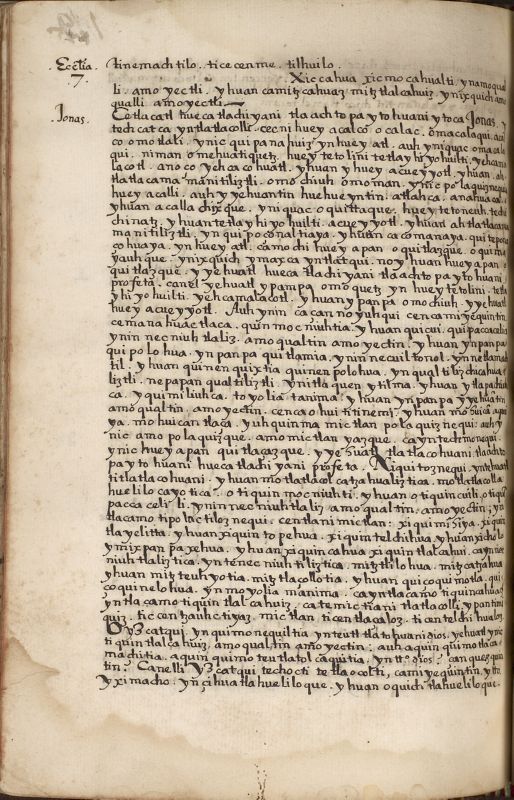 Eccta. tinemachtilo. ticecenme. tilhuilo.
7. Xiccahua xicmocahualti, ynamoqual
li. amo yectli. yhuan camitzcahuaz. mitztlalcahuiz ynixquich amo
qualli amo yectli.
Jonas. Cetlacatl huecatlachiyani tlaachtopaytohuani ytoca Jonas, y
techcatca yntlatlacolli. cecni huey acalco ocalac.
co omotlali. ynic quipanahuiz yn huey atl. auh yniquac
qui. niman omehuatiquetz. huey tetolini tetlayhiyohuilti,
lacotl. anoço ychcacohuatl. yhuan yhuey acueyotl. yhuan
tlatlacamamanitiliztli. omochiuh omoman. ynic polaquiznequi
huey acalli. auh yyehuantin huehueyntin. atlahca. anahuaca.
yhuan acallachixque. yniquac oquittaque. huey tetoneuh. techi
chinatz. yhuan tetlayhiyohuilti. acueyotl. yhuan ahtlatlaca
manitiliztli. yn quipoçonaltiaya. yhuan cacomanaya. quitepona
çohuaya. yn huey atl. camo chi hueyapan oquitlazque.
yauhque. ynixquich ymaxca yntlatqui. no yhuan hueyapan
quitlazque. yyehuatl huecatlachiyani tlaachtopaytohuani
profeta. canel yehuatl ypampa omoquetz yn huey tetolini.
yhiyohuilti. yehcamalacotl. yhuan ypanpa omochiuh. yyehuatl
huey acueyyotl. Auh ynin ca çan noyuhqui cencamiyequintin
cemanahuactlaca. quinmocniuhtia. yhuan quicui. quipaccacelia
ynin necniuhtlaliz. amoqualtin amo yectin. yhuan ynpanpa
quipolohua. yn panpa quitlamia. ynin necuiltonol. yn netlamach
til. yhuan quinenquixtia quinenpolohua. ynqualtiliz chicahua
liztli. nepapan qualtiliztli. ynitlaquen. ytilma. yhuan
ca. yquimiliuhca. toyolia tanima. yhuan ynpanpa yyehuatin
amoqualtin. amo yectin. cencaohuititinemi. yhuan
ya. mohuicantlaça. yuhquinma mictlan polaquiznequi. auh y
nic amo polaquizque. amo mictlan yazque. ca yn techmonequi.
ynic hueyapan quitlaçazque. yyehuatl tlatlacohuani. tlaachto
paytohuani huecatlachiyani profeta. Niquitoznequi. yntehuatl
titlatlacohuani. yhuan motlatlacol catzahualiztica. motlatlacolla
huelilocayotica. otiquinmocniuhti. yhuan otiquincuili.
paccaceli li. ynin necniuhtlaliz. amoqualtin. amo yectin; yn
tlacamo tipolactiloznequi. centlani mictlan: xiquimihiya. xiquin
tlayelitta. yhuan xiquintopehua. xiquintelchihua. yhuan xicholo
ymixpanpa xehua. yhuan xiquincahua xiquintlalcahui. ca ynnec
niuhtlaliztica. yn tenecniuhtiliztica. mitztlilohua. mitzcatzahua
yhuan mitzteuhyotia. mitztlaçollotia. yhuan quicoquimotla. qui
coquinelohua. yn moyolia manima. ca yntlacamo tiquincahuaz
yntlacamo tiquintlalcahuiz, ca temictiani tlatlacolli. ypan timi
quiz. ticcentzauhctiyaz. mictlan ticentlaçaloz. ticentelchihualoz.
O yzcatqui, yn quimonequiltia yn teutl tlatohuani Dios. yehuatl ynic
tiquintlalcahuiz. amoqualtin amo yectin: auh aquin quimotlaca
machitia. aquin quimoteutlatolcaquitia. yn tto. Dios? can quezquin
tin? Canelli yzcatqui techochcti tetlaocolti, camiyequintin. yn
yximacho. yn cihuatlahueliloque. yhuan oquichtlahueliloque.